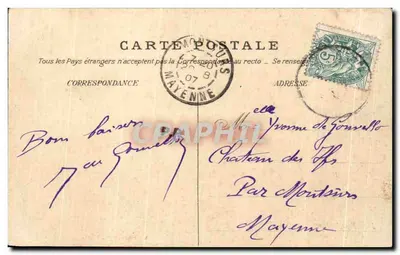 CARTE POSTALE
Tous les Pays étrangers n'acceptent pas la Correspondance au recto. - Se renseigner
CORRESPONDANCE
ADRESSE
MONTSURS
07
MAYENNE
5
Bons baisers
M de Gonvello
Melle Yvonne de Gonvello
Chateau des Ifs
Par Montsûrs
Mayenne
PR Carte Postale